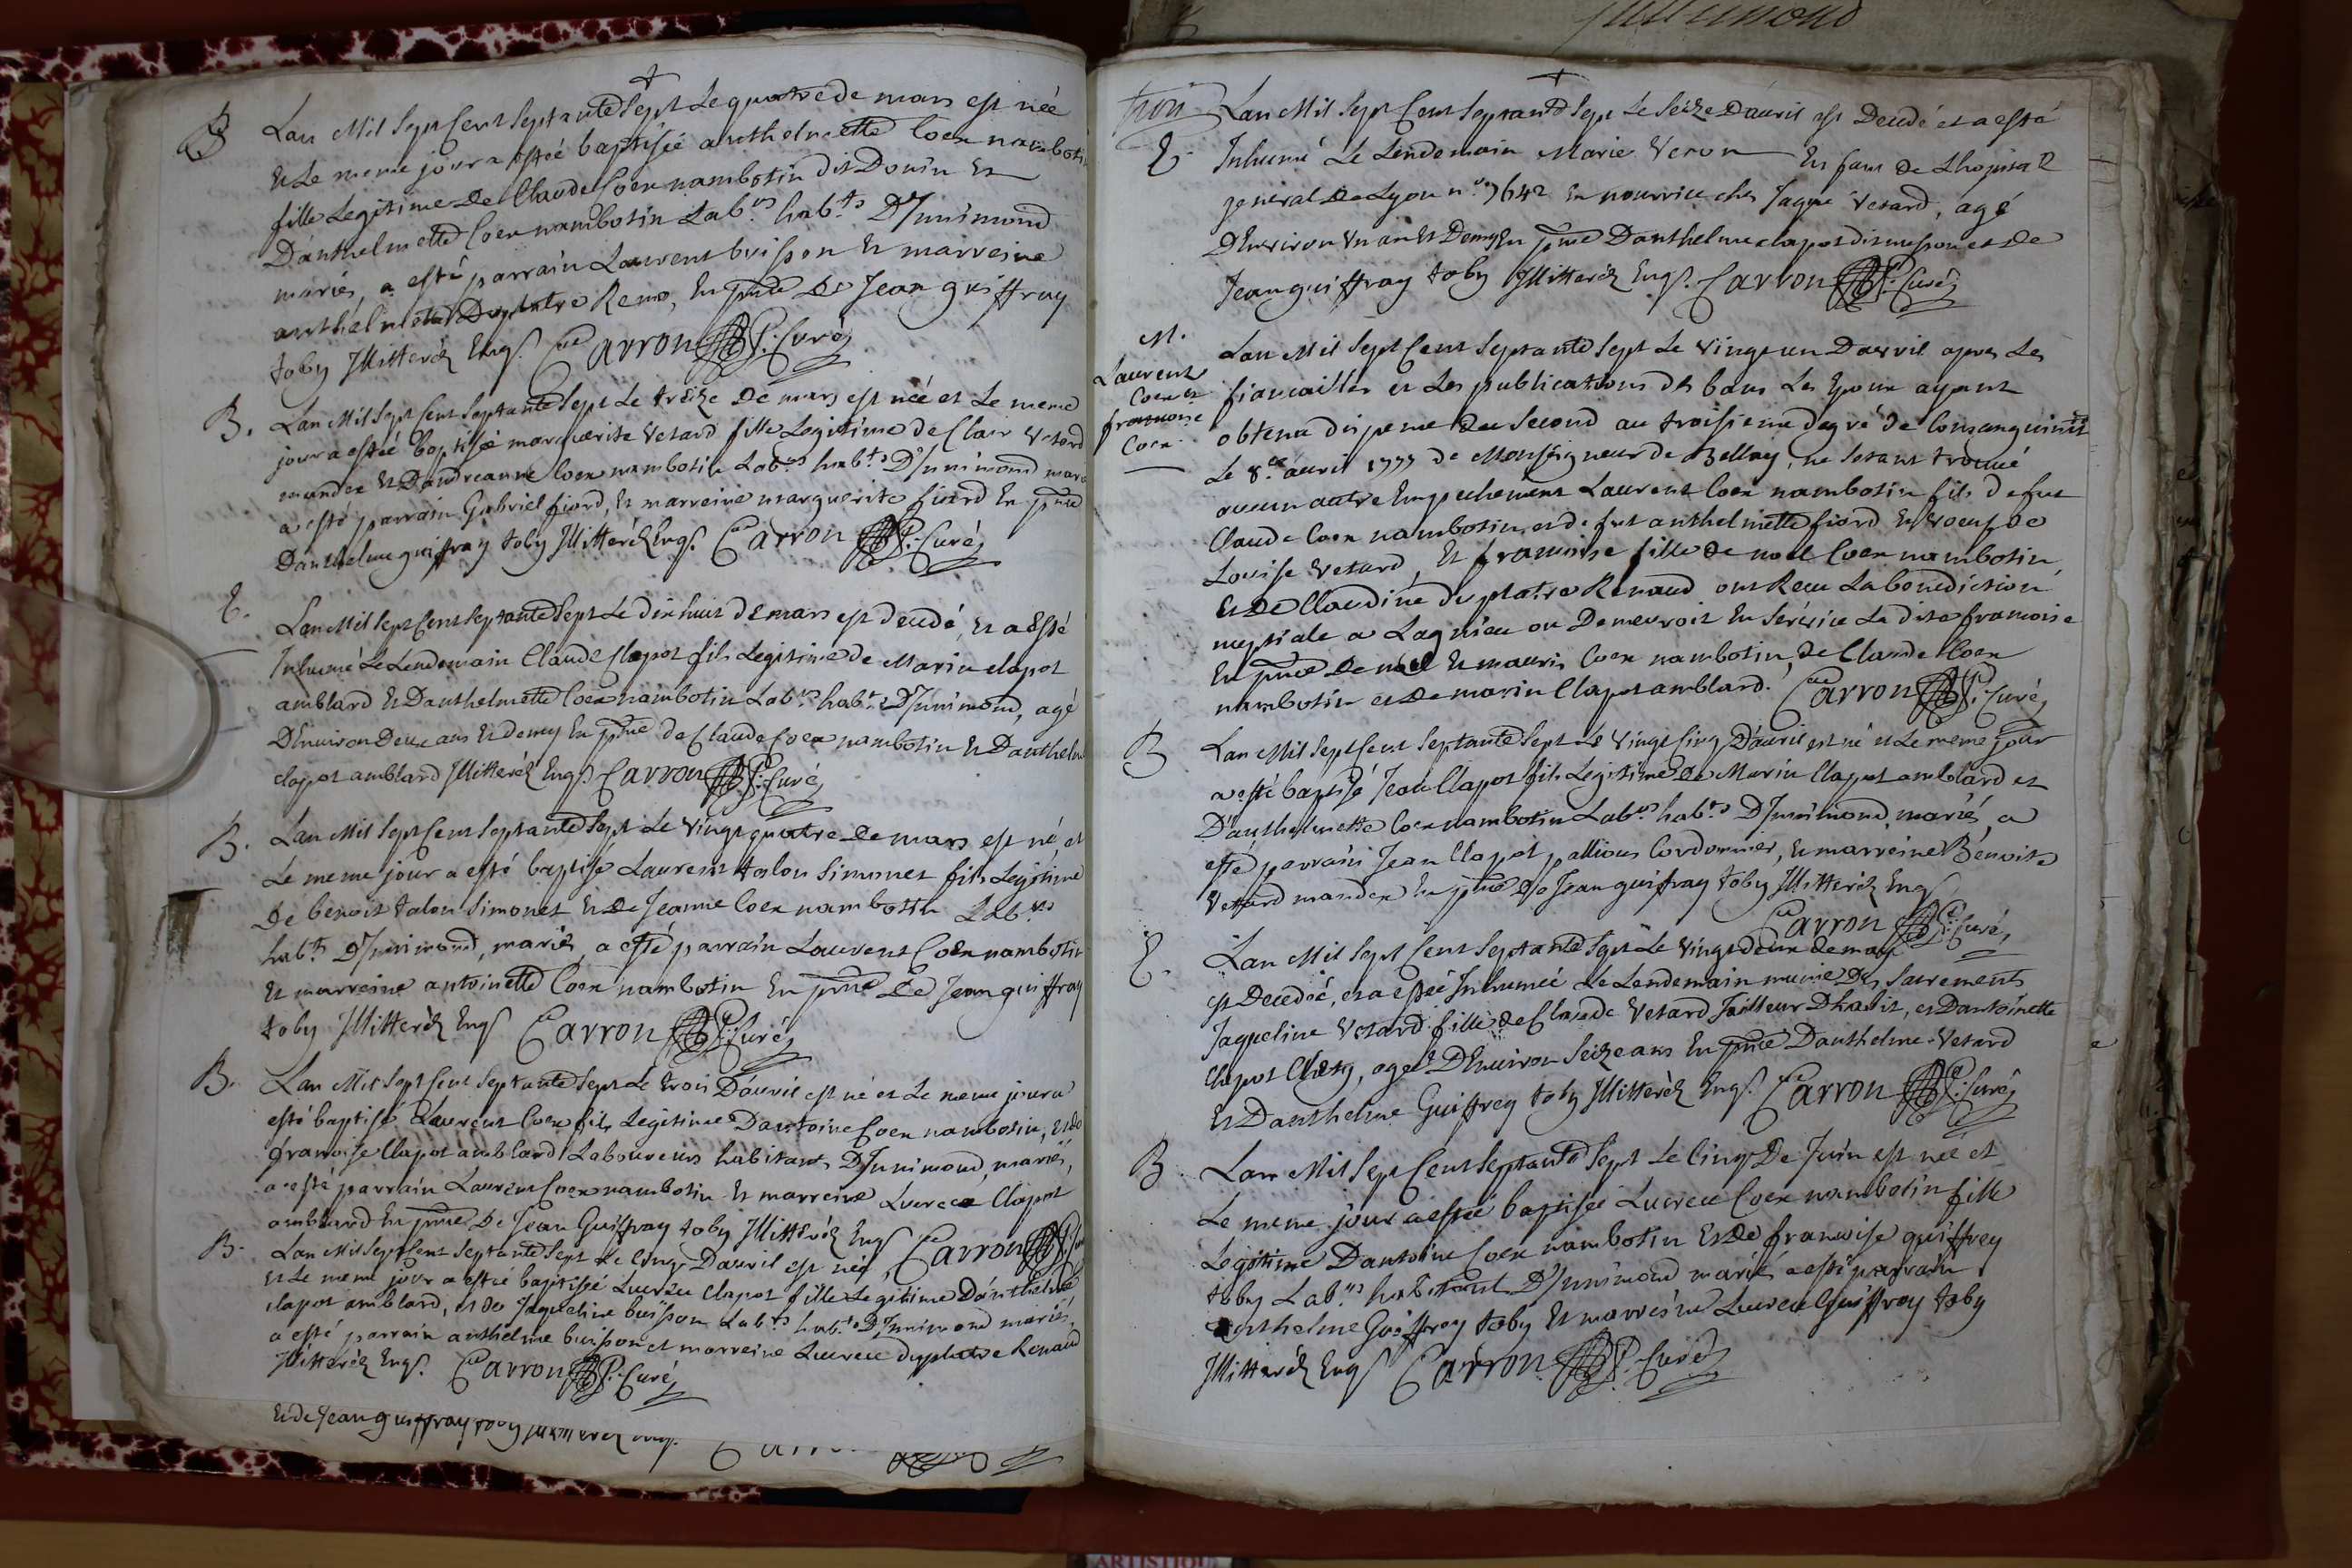 B Lan Mil Sept Cent Septante Sept Le quatre de mars est née
Et Le meme jour a estée baptisée anthelmette Coex nambotin
fille Legitime De Claude Coex nambotin dit Donin Et
D'anthelmette Coex nambotin Lab.rs hab.ts D'Innimond
mariés, a esté parrain Laurent buisson Et marreine
anthelmette Duplatre Reno, En pnce De Jean guiffray
toby Illitteréz Enqs. Carron Curé
B. Lan Mil Sept Cent Septante Sept Le treize De mars est née et Le meme
jour a estée baptisée marguerite Vetard fille Legitime de Clair Vetard
mandex Et D'andreanne Coex nambotin Lab.rs hab.ts D'Innimond mariés
a esté parrain Gabriel fiord, Et marreine marguerite fiord En pnce
D'anthelme guiffray toby Illitteréz Enqs. Carron Curé
E. Lan Mil Sept Cent Septante Sept Le dix huit de mars est decedé, Et a Esté
Inhumé Le Lendemain Claude Clapot fils Legitime de Marin clapot
amblard Et D'anthelmette Coex nambotin Lab.rs hab.ts D'Innimond, agé
D'Environ Deux ans Et demy En pnce de Claude Coex nambotin Et D'anthelme
clapot amblard Illitteréz Enqs. Carron Curé
B. Lan Mil Sept Cent Septante Sept Le Vingt quatre De mars est né et
Le meme jour a esté baptisé Laurent talon Simonet fils Legitime
De benoit talon Simonet Et De Jeanne Coex nambotin Lab.rs
hab.ts D'Innimond, mariés, a esté parrain Laurent Coex nambotin
Et marreine antoinette Coex nambotin En pnce De Jean guiffray
toby Illitteréz Enqs Carron Curé
B. Lan Mil Sept Cent Septante Sept Le trois D'avril est né et Le meme jour a
esté baptisé Laurent Coex fils Legitime D'antoine Coex nambotin, et de
francoise Clapot amblard Laboureurs habitants D'Innimond, mariés,
a esté parrain Laurent Coex nambotin Et marreine Lucrece Clapot
amblard En pnce De Jean Guiffray toby Illitteréz Enqs Carron
B. Lan Mil Sept Cent Septante Sept Le Cinq D'avril est née
Et Le meme jour a estée baptisée Lucrece Clapot fille Legitime D'anthelme
clapot amblard, et de Jaqueline buisson Lab.rs hab.ts D'Innimond mariés,
a esté parrain anthelme buisson et marreine Lucrece duplatre Renaud
Illitteréz Enqs. Carron Curé
Et de Jean guiffray toby
E. Lan Mil Sept Cent Septante Sept Le Seize D'avril est Decedé et a esté
Inhumé Le Lendemain Marie Veron Enfant de Lhopital
general De Lyon n.o 7642 En nourrice ches Jaque Vetard, agé
D'Environ Un an Et Demy En pnce D'anthelme clapot dit musson et De
Jean guiffray toby Illitteréz Enqs. Carron Curé
M.
Laurent
Coex et
francoise
Coex.
Lan Mil Sept Cent Septante Sept Le Vingt un D'avril apres Les
fiancailles et Les publications des bans Les Epoux ayant
obtenu dispense du Second au troisieme degré de Consanguinité
Le 8.e avril 1777 de Monseigneur de Belley, ne setant trouvé
aucun autre Empechement Laurent Coex nambotin fils de fut
Claude Coex nambotin et de fut anthelmette fiord En Voeuf de
Louise Vetard, Et francoise fille de noel Coex nambotin
Et De Claudine duplatre Renaud ont Receu La benediction
nuptiale a Lagnieu ou Demeuroit En Service La dite francoise
En pnce De noel Et mauris Coex nambotin, de Claude Coex
nambotin et De marin Clapot amblard. Carron Curé
B Lan Mil Sept Cent Septante Sept Le Vingt Cinq D'avril est né et Le meme jour
a esté baptisé Jean Clapot fils Legitime De Marin Clapot amblard et
D'anthelmette Coex nambotin Lab.rs hab.ts D'Innimond, mariés, a
esté parrain Jean Clapot pallioux Cordonnier, Et marreine Benoite
Vetard mandex En pnce De Jean guiffray toby Illitteréz Enqs
Carron Curé
E. Lan Mil Sept Cent Septante Sept Le Vingt deux de may
est Decedée, et a estée Inhumée Le Lendemain munie Des Sacrements
Jaqueline Vetard fille de Claude Vetard tailleur D'habit, et D'antoinette
Clapot, agée D'Environ Seize ans En pnce D'anthelme Vetard
Et D'anthelme Guiffrey toby Illitteréz Enqs. Carron Curé
B Lan Mil Sept Cent Septante Sept Le Cinq De Juin est née et
Le meme jour a estée baptisée Lucrece Coex nambotin fille
Legitime D'antoine Coex nambotin Et De francoise guiffrey
toby Lab.rs habitant D'Innimond mariés a esté parrain
anthelme Guiffrey toby Et marreine Lucrece Guiffray toby
Illitteréz Enqs Carron Curé